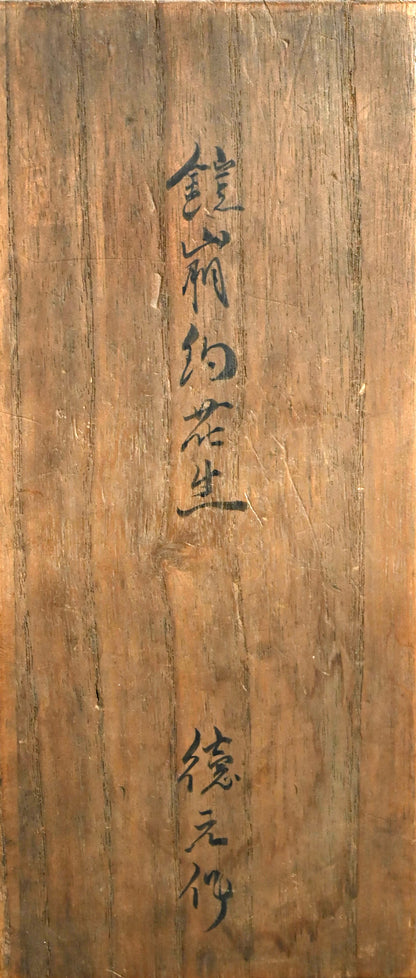 鎧崩釣花生
徳元作